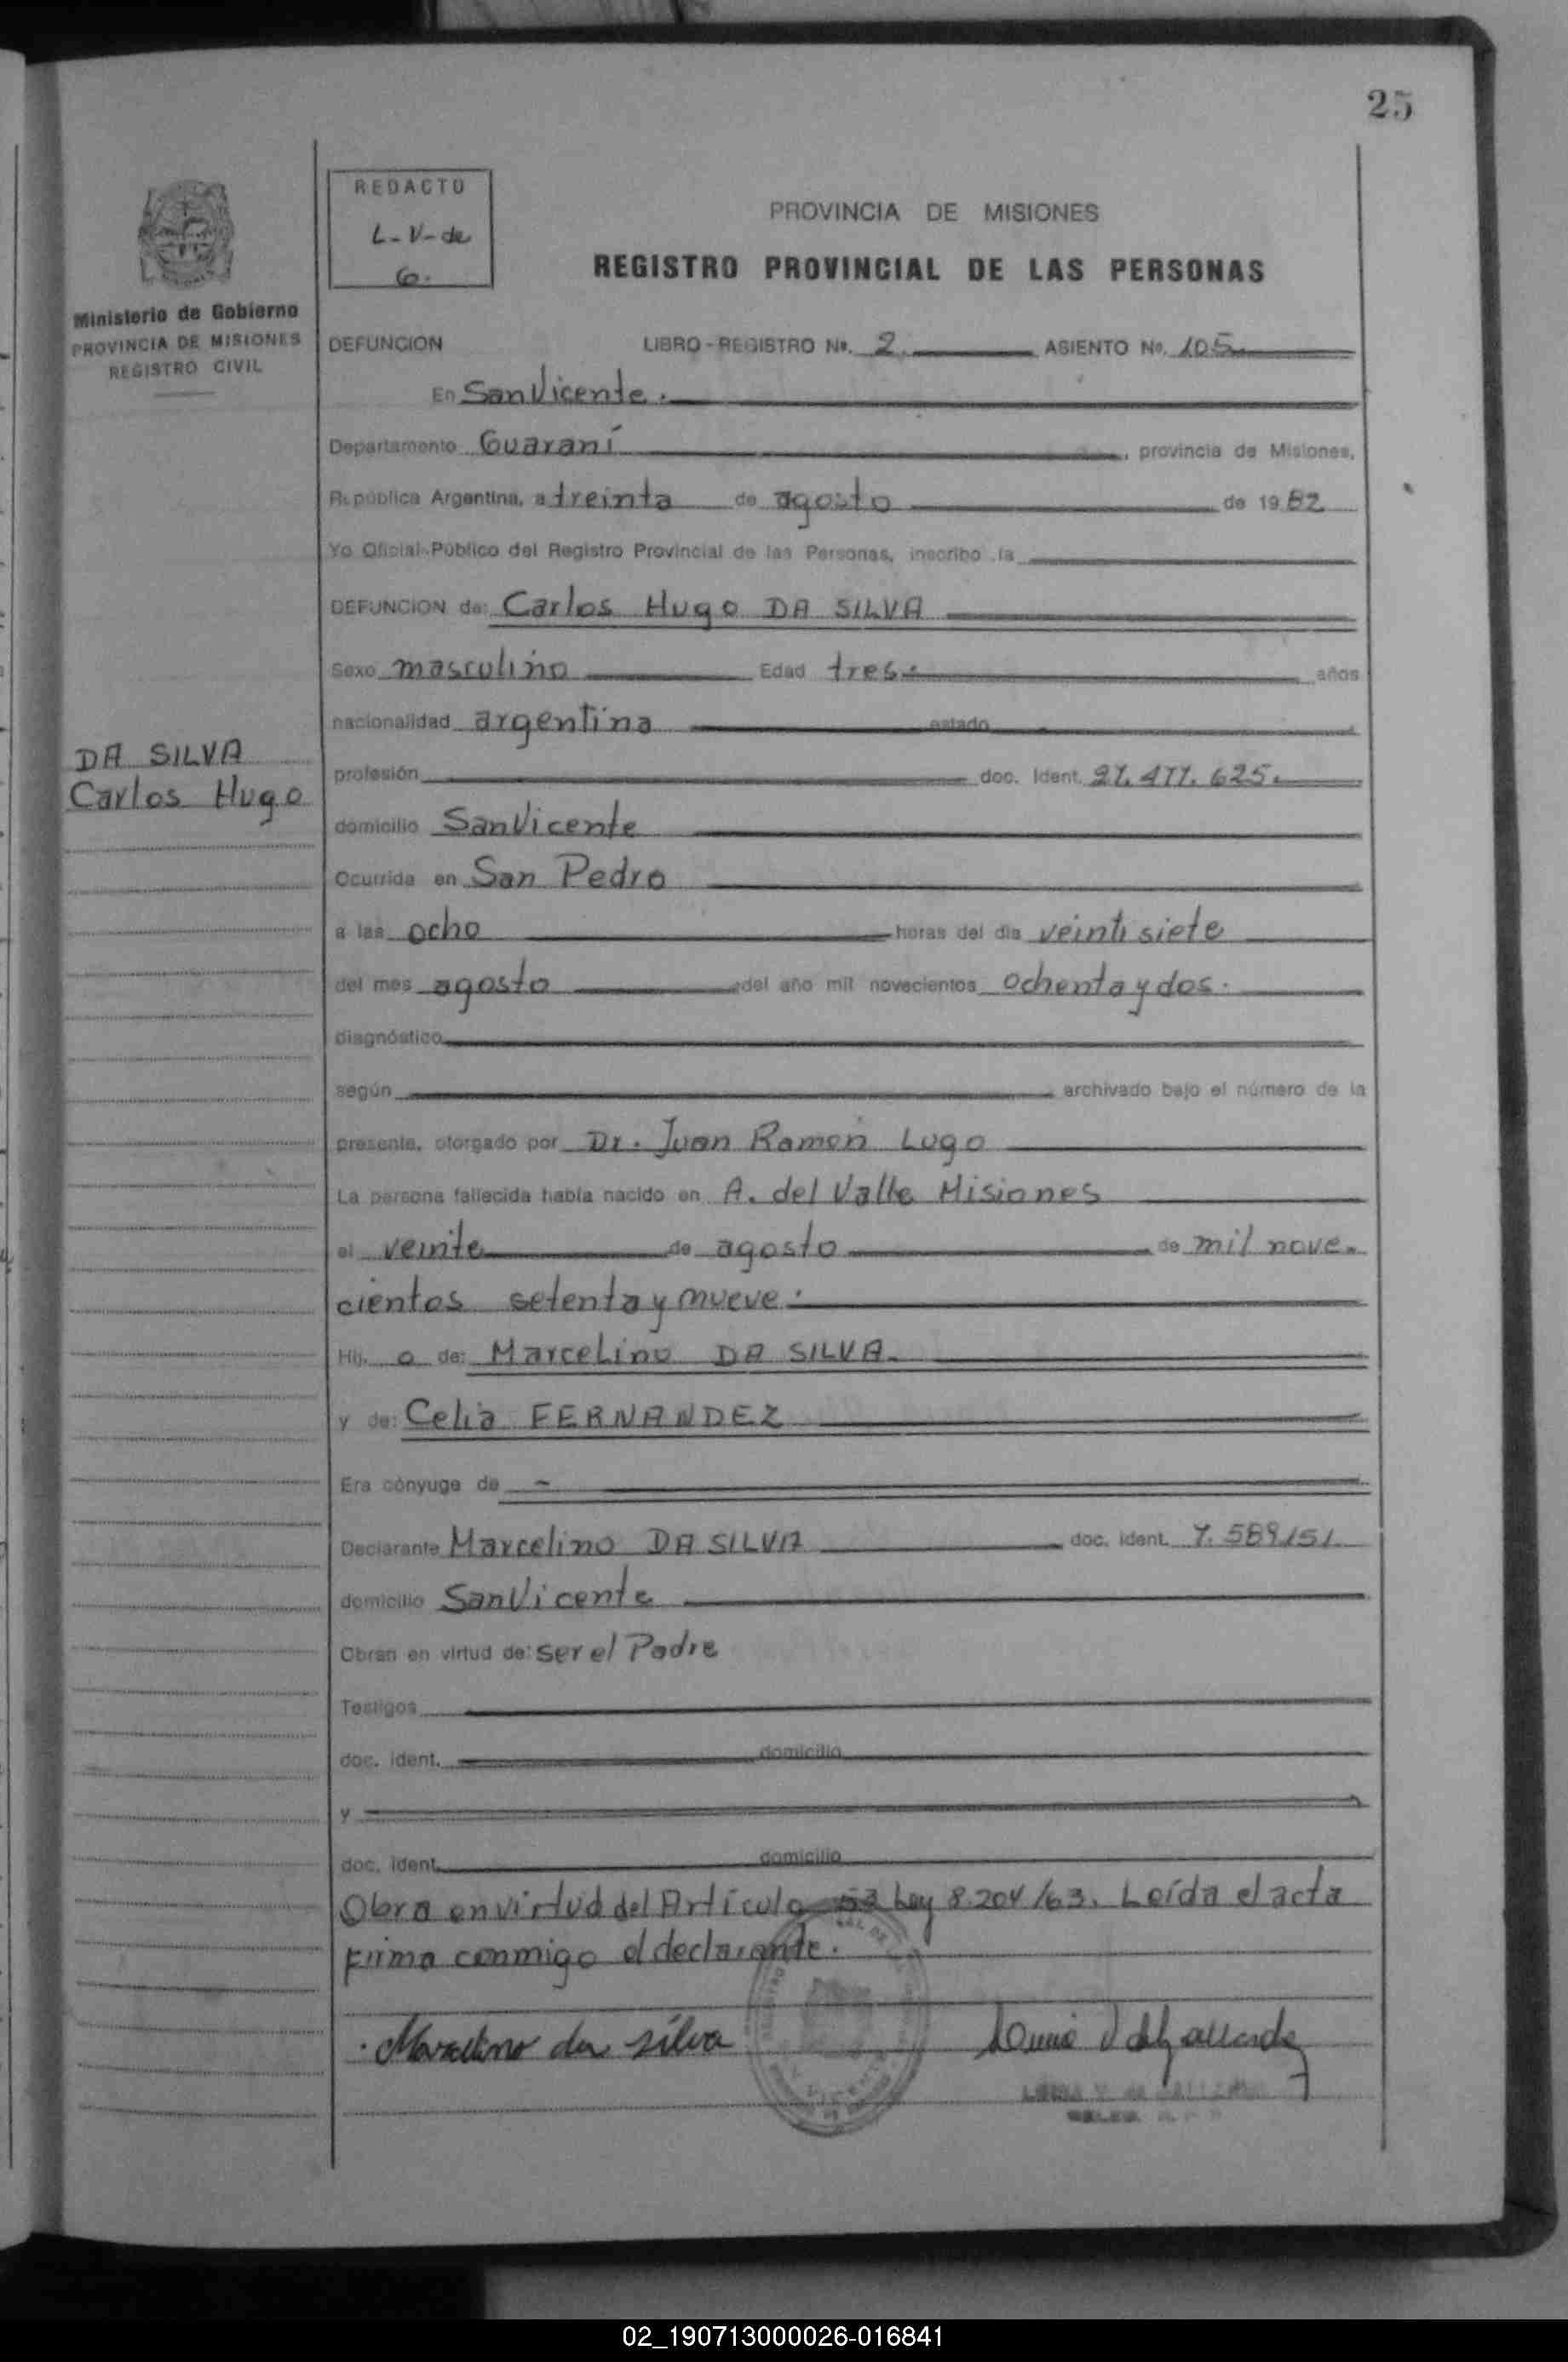 25
REDACTO
L-V-de
G.
PROVINCIA DE MISIONES
REGISTRO PROVINCIAL DE LAS PERSONAS
Ministerio de Gobierno
PROVINCIA DE MISIONES
REGISTRO CIVIL
DEFUNCION LIBRO-REGISTRO Nº. 2. ASIENTO Nº. 105
En San Vicente.
Departamento Guaraní, provincia de Misiones,
República Argentina, a treinta de agosto de 1982
Yo Oficial Público del Registro Provincial de las Personas, inscribo la
DEFUNCION de: Carlos Hugo DA SILVA
Sexo masculino Edad tres. años
nacionalidad argentina estado
DA SILVA
Carlos Hugo
profesión doc. Ident. 27.477.625.
domicilio San Vicente
Ocurrida en San Pedro
a las ocho horas del dia veintisiete
del mes agosto del año mil novecientos ochenta y dos.
diagnóstico
según archivado bajo el número de la
presente, otorgado por Dr. Juan Ramón Lugo
La persona fallecida había nacido en A. del Valle Misiones
el veinte de agosto de mil nove-
cientos setenta y nueve.
Hij o de: Marcelino DA SILVA.
y de: Celia FERNANDEZ
Era cónyuge de -
Declarante Marcelino DA SILVA doc. ident. 7.589151
domicilio San Vicente
Obran en virtud de: ser el Padre
Testigos
doc. ident. domicilio
y
doc. ident. domicilio
Obra en virtud del Artículo 53 Ley 8.204/63. Leída el acta
firma conmigo el declarante.
Marcelino da silva
02_190713000026-016841